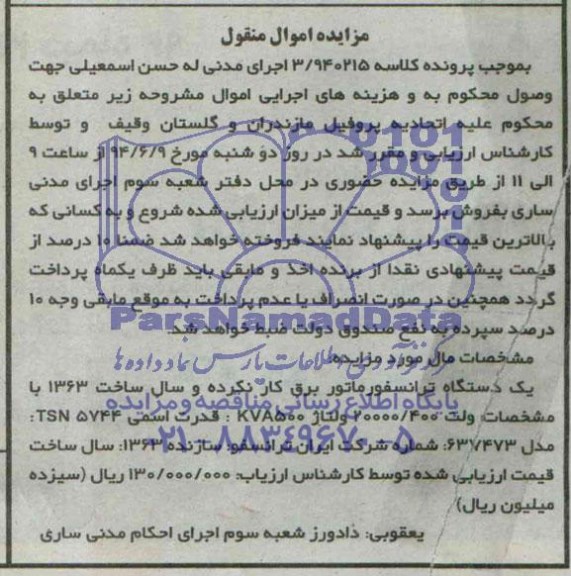 مزایده اموال منقول
بموجب پرونده کلاسه ۳/۹۴۰۲۱۵ اجرای مدنی له حسن اسمعیلی جهت
وصول محکوم به و هزینه های اجرایی اموال مشروحه زیر متعلق به
محکوم علیه اتحادیه پروفیل مازندران و گلستان وقیف و توسط
کارشناس ارزیابی و مقرر شد در روز دو شنبه مورخ ۹۴/۶/۹ از ساعت ۹
الی ۱۱ از طریق مزایده حضوری در محل دفتر شعبه سوم اجرای مدنی
ساری بفروش برسد و قیمت از میزان ارزیابی شده شروع و به کسانی که
بالاترین قیمت را پیشنهاد نمایند فروخته خواهد شد ضمنا ۱۰ درصد از
قیمت پیشنهادی نقدا از برنده اخذ و مابقی باید ظرف یکماه پرداخت
گردد همچنین در صورت انصراف یا عدم پرداخت به موقع مابقی وجه ۱۰
درصد سپرده به نفع صندوق دولت ضبط خواهد شد.
ParsNamadData
مشخصات مال مورد مزایده:
مرکز فرآوری اطلاعات پارس نماد داده ها
یک دستگاه ترانسفورماتور برق کار نکرده و سال ساخت ۱۳۶۳ با
پایگاه اطلاع رسانی مناقصه و مزایده
مشخصات: ولت ۲۰۰۰۰/۴۰۰ ولتاژ KVA۵۰۰ : قدرت اسمی TSN ۵۷۴۴:
مدل ۶۳۷۴۷۳: شماره شرکت ایران ترانسفو: سازنده ۱۳۶۳: سال ساخت
۰۲۱-۸۸۳۴۹۶۷۰-۵
قیمت ارزیابی شده توسط کارشناس ارزیاب: ۱۳۰/۰۰۰/۰۰۰ ریال (سیزده
میلیون ریال)
یعقوبی: دادورز شعبه سوم اجرای احکام مدنی ساری